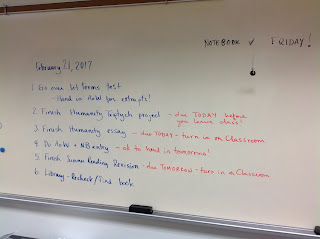 NOTEBOOK ✓ FRIDAY!
February 21, 2017
1. Go over Lit Terms test
- Hand in AoW for extra pts!
2. Finish Humanity Triptych project - due TODAY before
you leave class!
3. Finish Humanity essay - due TODAY - turn in on Classroom
4. Do AoW + NB entry - ok to hand in tomorrow!
5. Finish Summ Reading Revision - due TOMORROW - turn in on Classroom
6. Library - Recheck/Find book